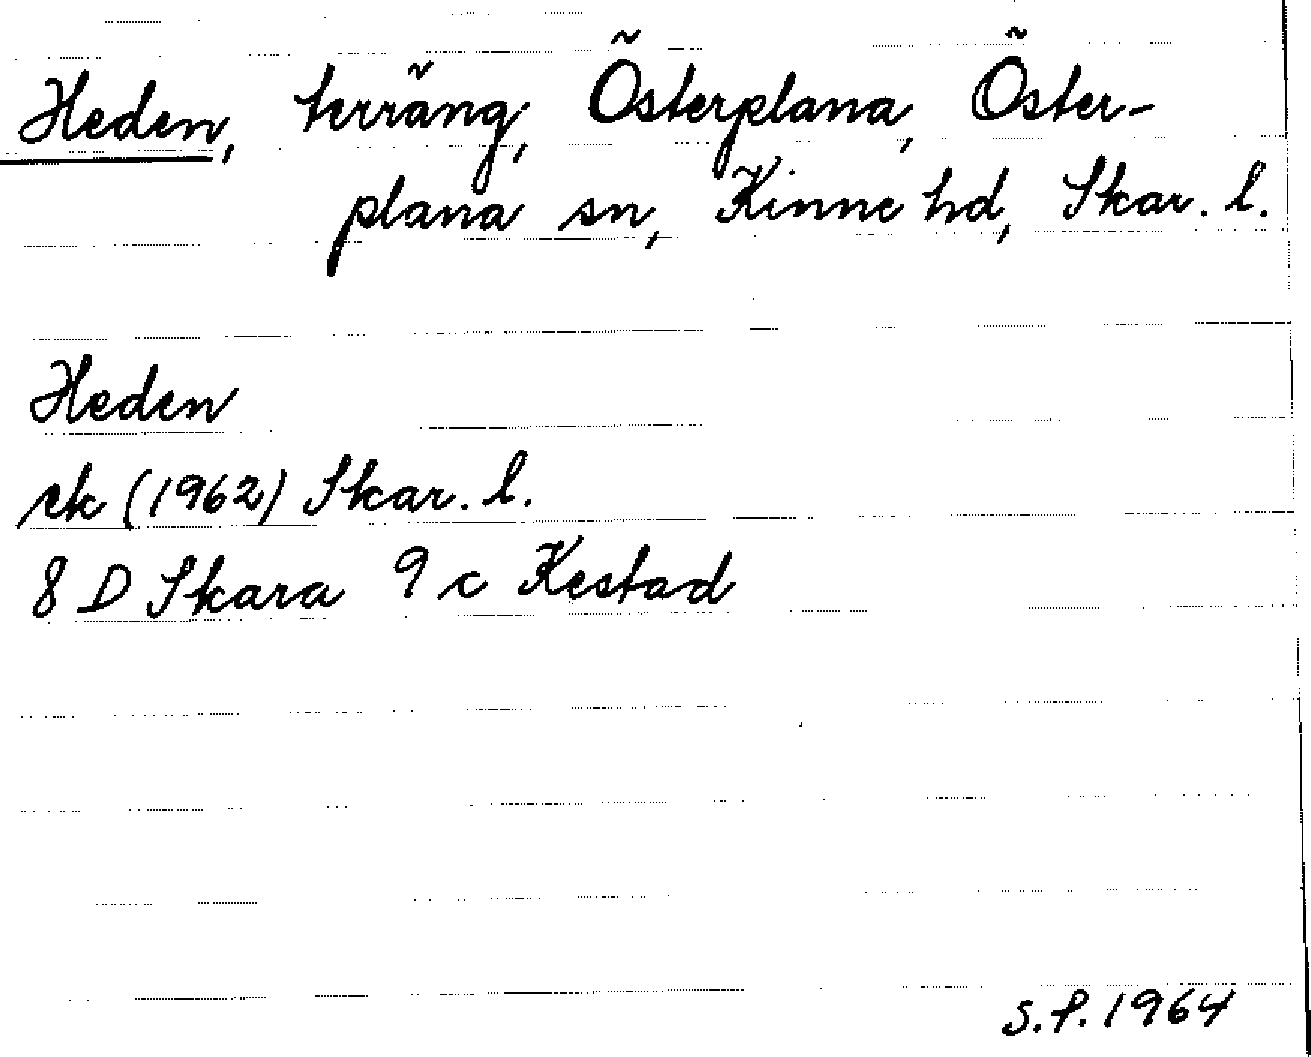 Heden, terräng, Österplana, Öster-
plana sn, Kinne hd, Skar. l.
Heden
ek (1962) Skar. l.
8 D Skara 9 c Kestad
S.F. 1964